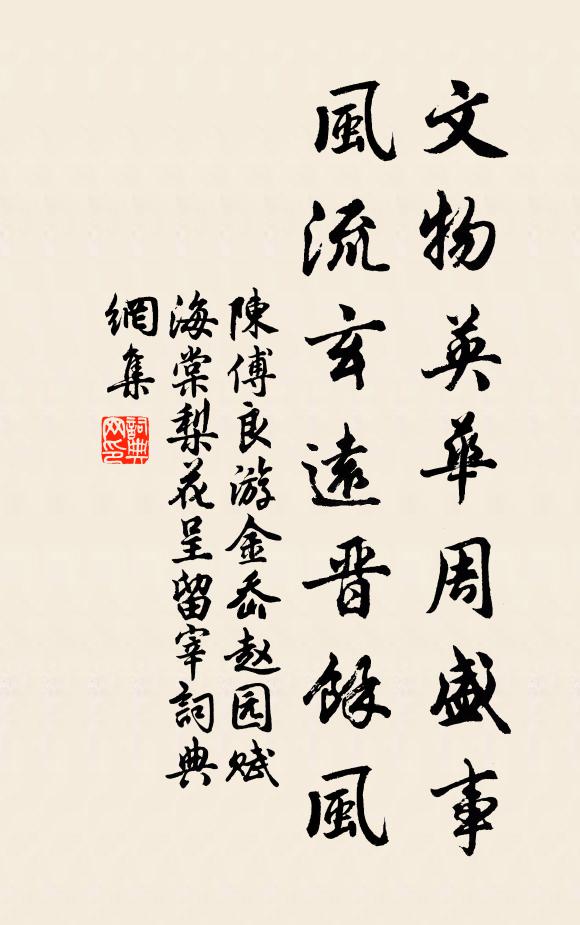 文物英華周盛事
風流玄遠晋餘風
陳傅良游金岙赵园赋
海棠梨花呈留宰詞典
網集
詞典
网印